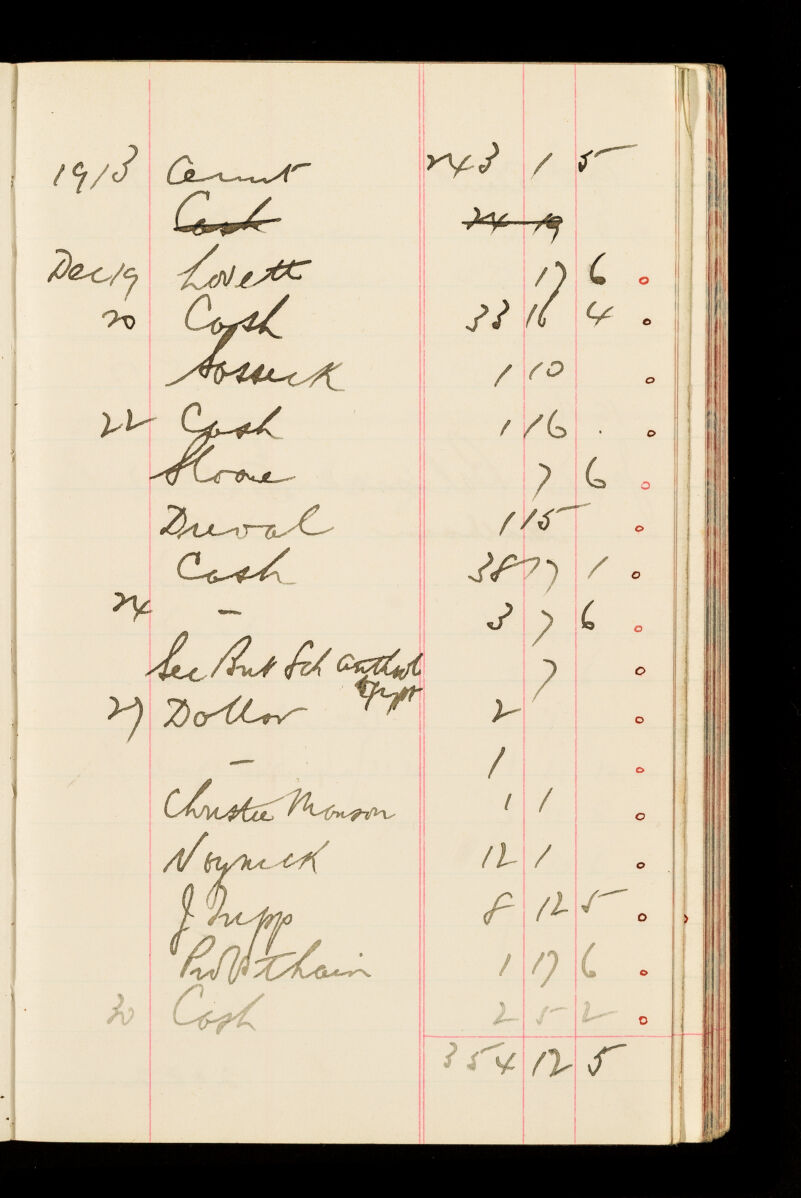 1913 243 1 5
Cash 24 19
Dec 19 Lovett 17 6
20 Cash 33 16 4
1 10
22 Cash 1 16 .
7 6
1 15
Cash 38 17 1
24 — 3 7 6
Sec Brit Sch 7
27 Dollar 2
— 1
Christie Manson 1 1
Voynick 12 1
J Tripp 8 12 5
1 17 6
30 Cash 2 5 2
354 12 5